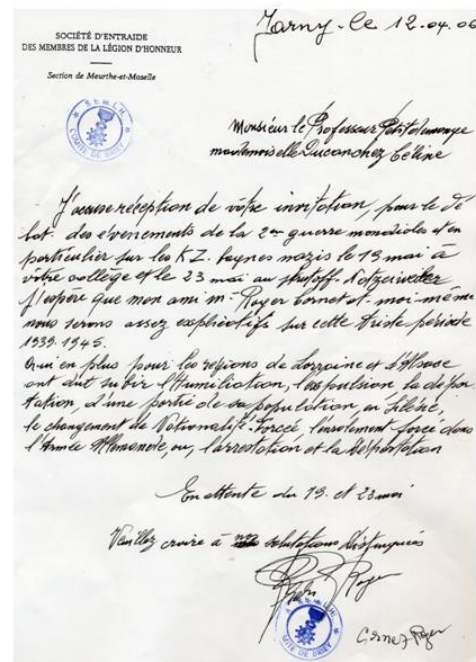 SOCIÉTÉ D'ENTRAIDE
DES MEMBRES DE LA LÉGION D'HONNEUR
Section de Meurthe-et-Moselle
Jarny - le 12.04.06
S.E.M.L.H.
COMITÉ DE BRIEY
Monsieur le Professeur
mademoiselle Ducanchez Céline
J'accuse réception de votre invitation, pour le dé
bat des évènements de la 2em guerre mondiales et en
particulier sur les K.Z. nazis le 19 mai à
votre collège et le 23 mai au Strutoff
J'espère que mon ami m. Royer Cornet et moi-même
nous serons assez explicatifs sur cette triste période
1939-1945.
Qui en plus pour les régions de Lorraine et d'Alsace
ont dut subir l'humiliation, l'expulsion la dépor
tation, d'une partie de sa population, en Silésie,
le changement de Nationalité. Forcé l'enrolement forcé dans
l'Armée Allemande, ou, l'arrestation et la Déportation
En attente du 19 et 23 mai
Veuillez croire à salutations distinguées
Royer
COMITÉ DE BRIEY